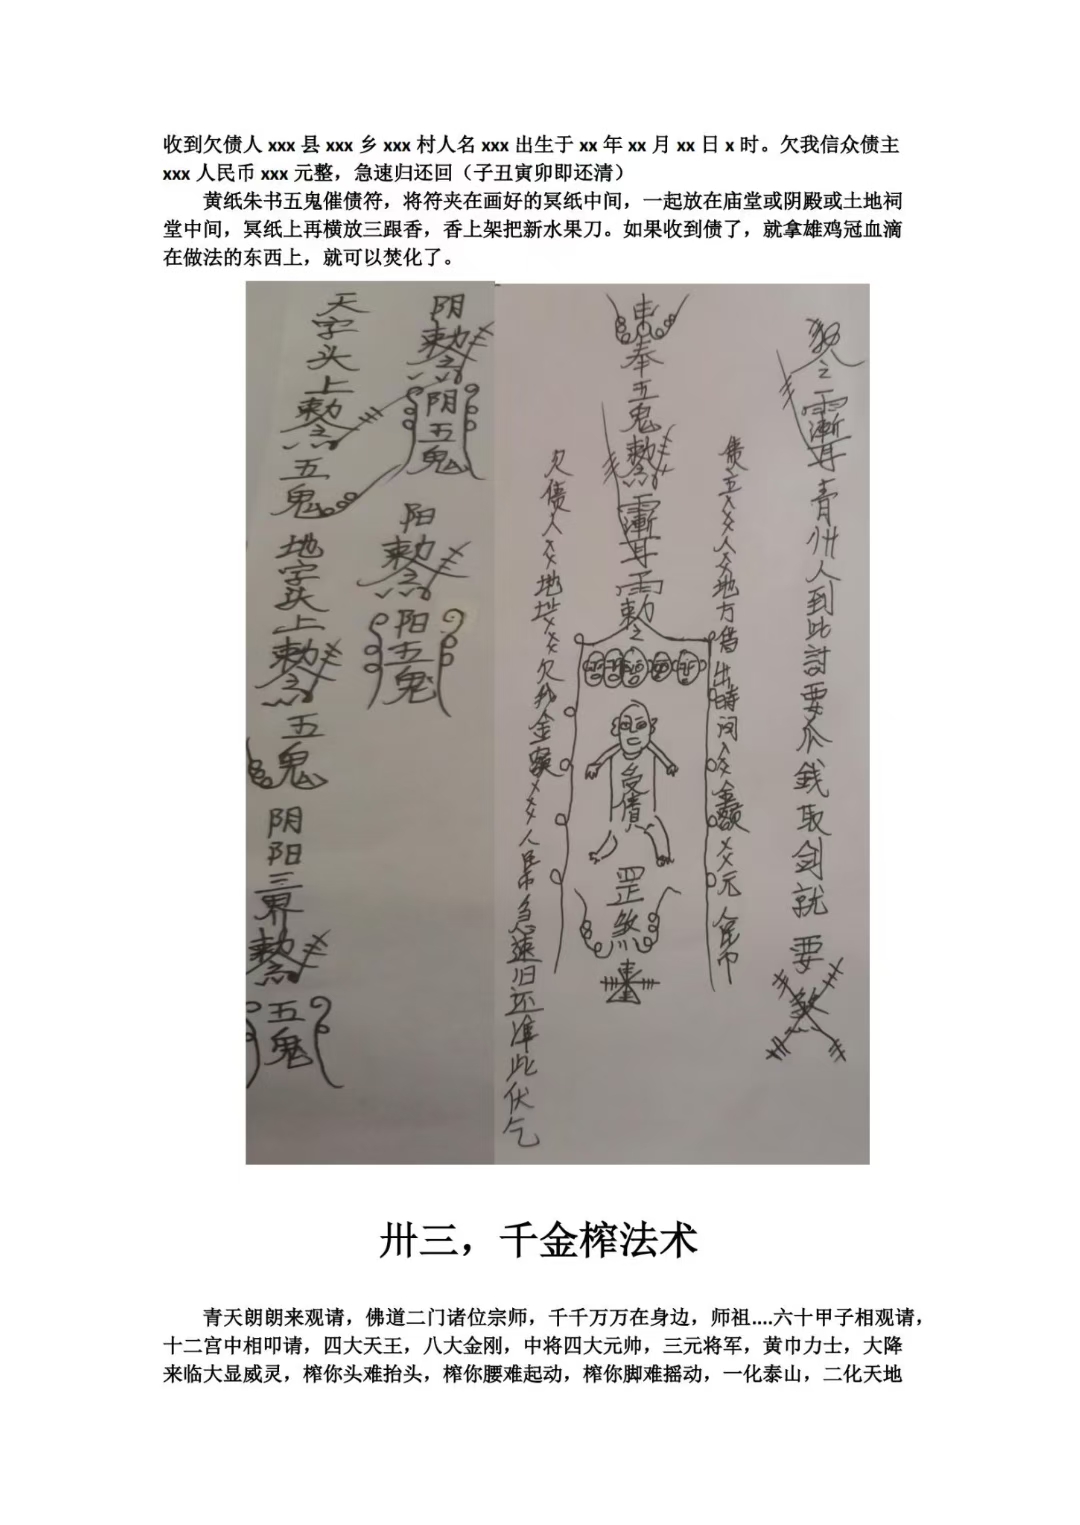 收到欠债人 xxx 县 xxx 乡 xxx 村人名 xxx 出生于 xx 年 xx 月 xx 日 x 时。欠我信众债主
xxx 人民币 xxx 元整，急速归还回（子丑寅卯即还清）
黄纸朱书五鬼催债符，将符夹在画好的冥纸中间，一起放在庙堂或阴殿或土地祠
堂中间，冥纸上再横放三跟香，香上架把新水果刀。如果收到债了，就拿雄鸡冠血滴
在做法的东西上，就可以焚化了。
阴
阴五鬼
阳
阳五鬼
天字头上
五鬼
地字头上
五鬼
阴阳三界
五鬼
青州人到此討要
錢取剑就要
债主人地方借出時间金额元人民币
奉五鬼
敕之
負債
罡煞
欠债人地址欠我金额人民币急速归还准此伏乞
卅三，千金榨法术
青天朗朗来观请，佛道二门诸位宗师，千千万万在身边，师祖....六十甲子相观请，
十二宫中相叩请，四大天王，八大金刚，中将四大元帅，三元将军，黄巾力士，大降
来临大显威灵，榨你头难抬头，榨你腰难起动，榨你脚难摇动，一化泰山，二化天地